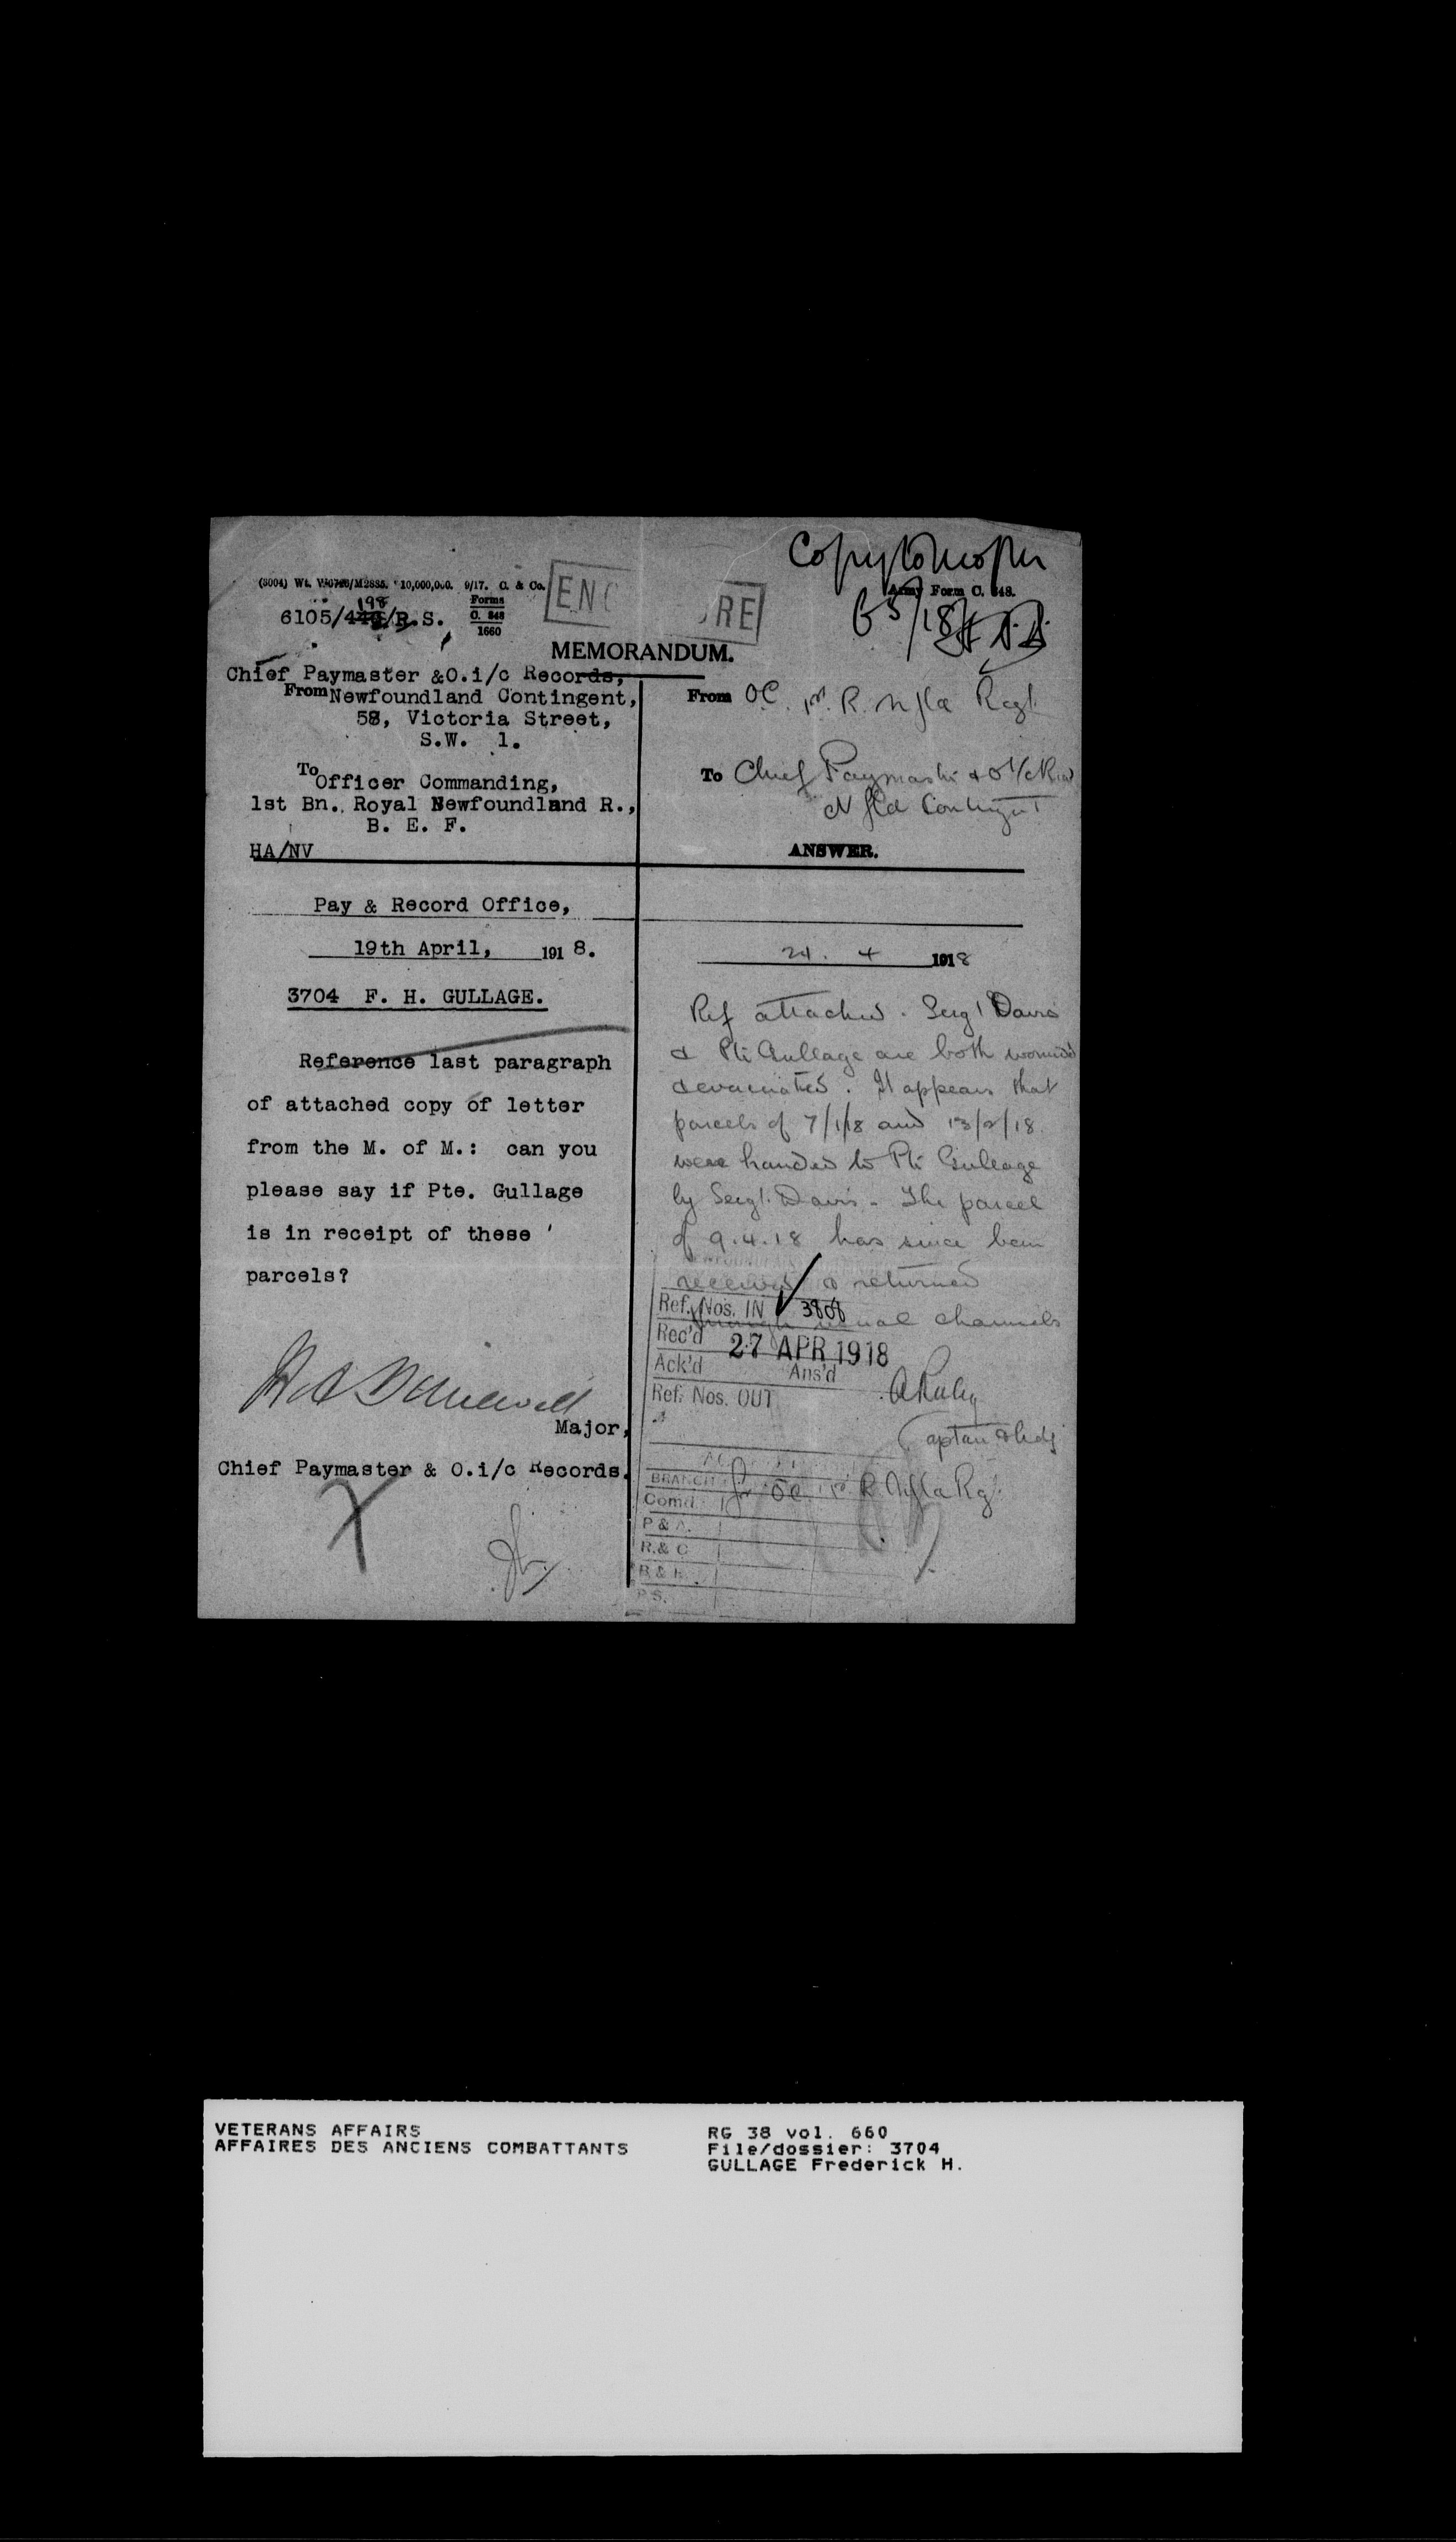 (8004) Wt. 10,000,000. 9/17. C. & Co.
Forms
C. 348
1660
Army Form C. 348.
198
6105/R.S.
MEMORANDUM.
Chief Paymaster &O.i/c Records,
From Newfoundland Contingent,
58, Victoria Street,
S.W. 1.
To Officer Commanding,
1st Bn. Royal Newfoundland R.,
B. E. F.
HA/NV
Pay & Record Office,
19th April, 1918.
3704 F. H. GULLAGE.
Reference last paragraph
of attached copy of letter
from the M. of M.: can you
please say if Pte. Gullage
is in receipt of these
parcels?
Major,
Chief Paymaster & O.i/c Records.
From OC. 1st. R. Nfld Regt.
To Chief Paymaster & O i/c
Nfld Contingent
ANSWER.
24. 4 1918
Ref attached. Sergt Davis
& Pte Gullage are both wounded
& evacuated. It appears that
parcels of 7/1/18 and 13/2/18
were handed to Pte Gullage
by Sergt. Davis - The parcel
of 9.4.18 has since been
received & returned
through usual channels
Captain & Adj
for OC 1st R Nfld Rgt.
Ref. Nos. IN 3808
Rec'd 27 APR 1918
Ack'd Ans'd
Ref. Nos. OUT
BRANCH
Comd.
P & A.
R. & C
P.S.
VETERANS AFFAIRS
AFFAIRES DES ANCIENS COMBATTANTS
RG 38 vol. 660
File/dossier: 3704
GULLAGE Frederick H.